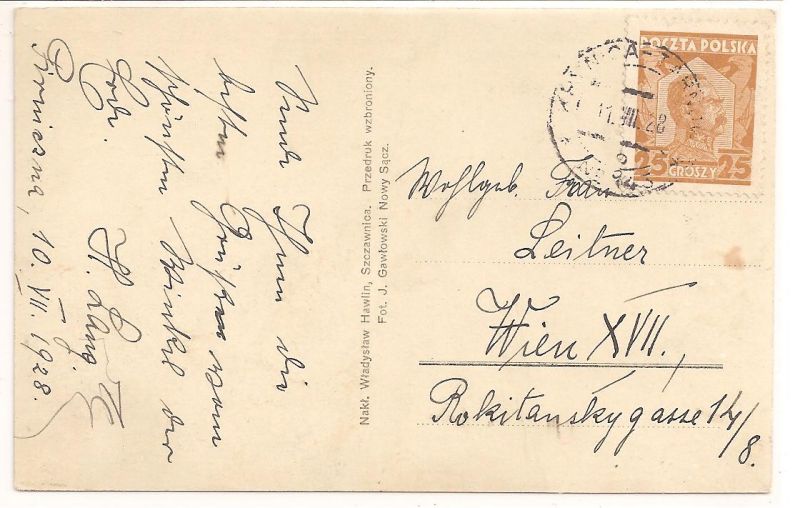 Sende Ihnen die
besten Grüße vom
schönsten Winkel der
Erde.
H. Lang
Piwniczna, 10. VII. 1928.
Nakł. Władysław Hawlin, Szczawnica. Przedruk wzbroniony.
Fot. J. Gawłowski Nowy Sącz.
POCZTA POLSKA
25 GROSZY 25
11.VII.28
Wohlgeb. Frau
Leitner
Wien XVII.,
Rokitanskygasse 14/8.